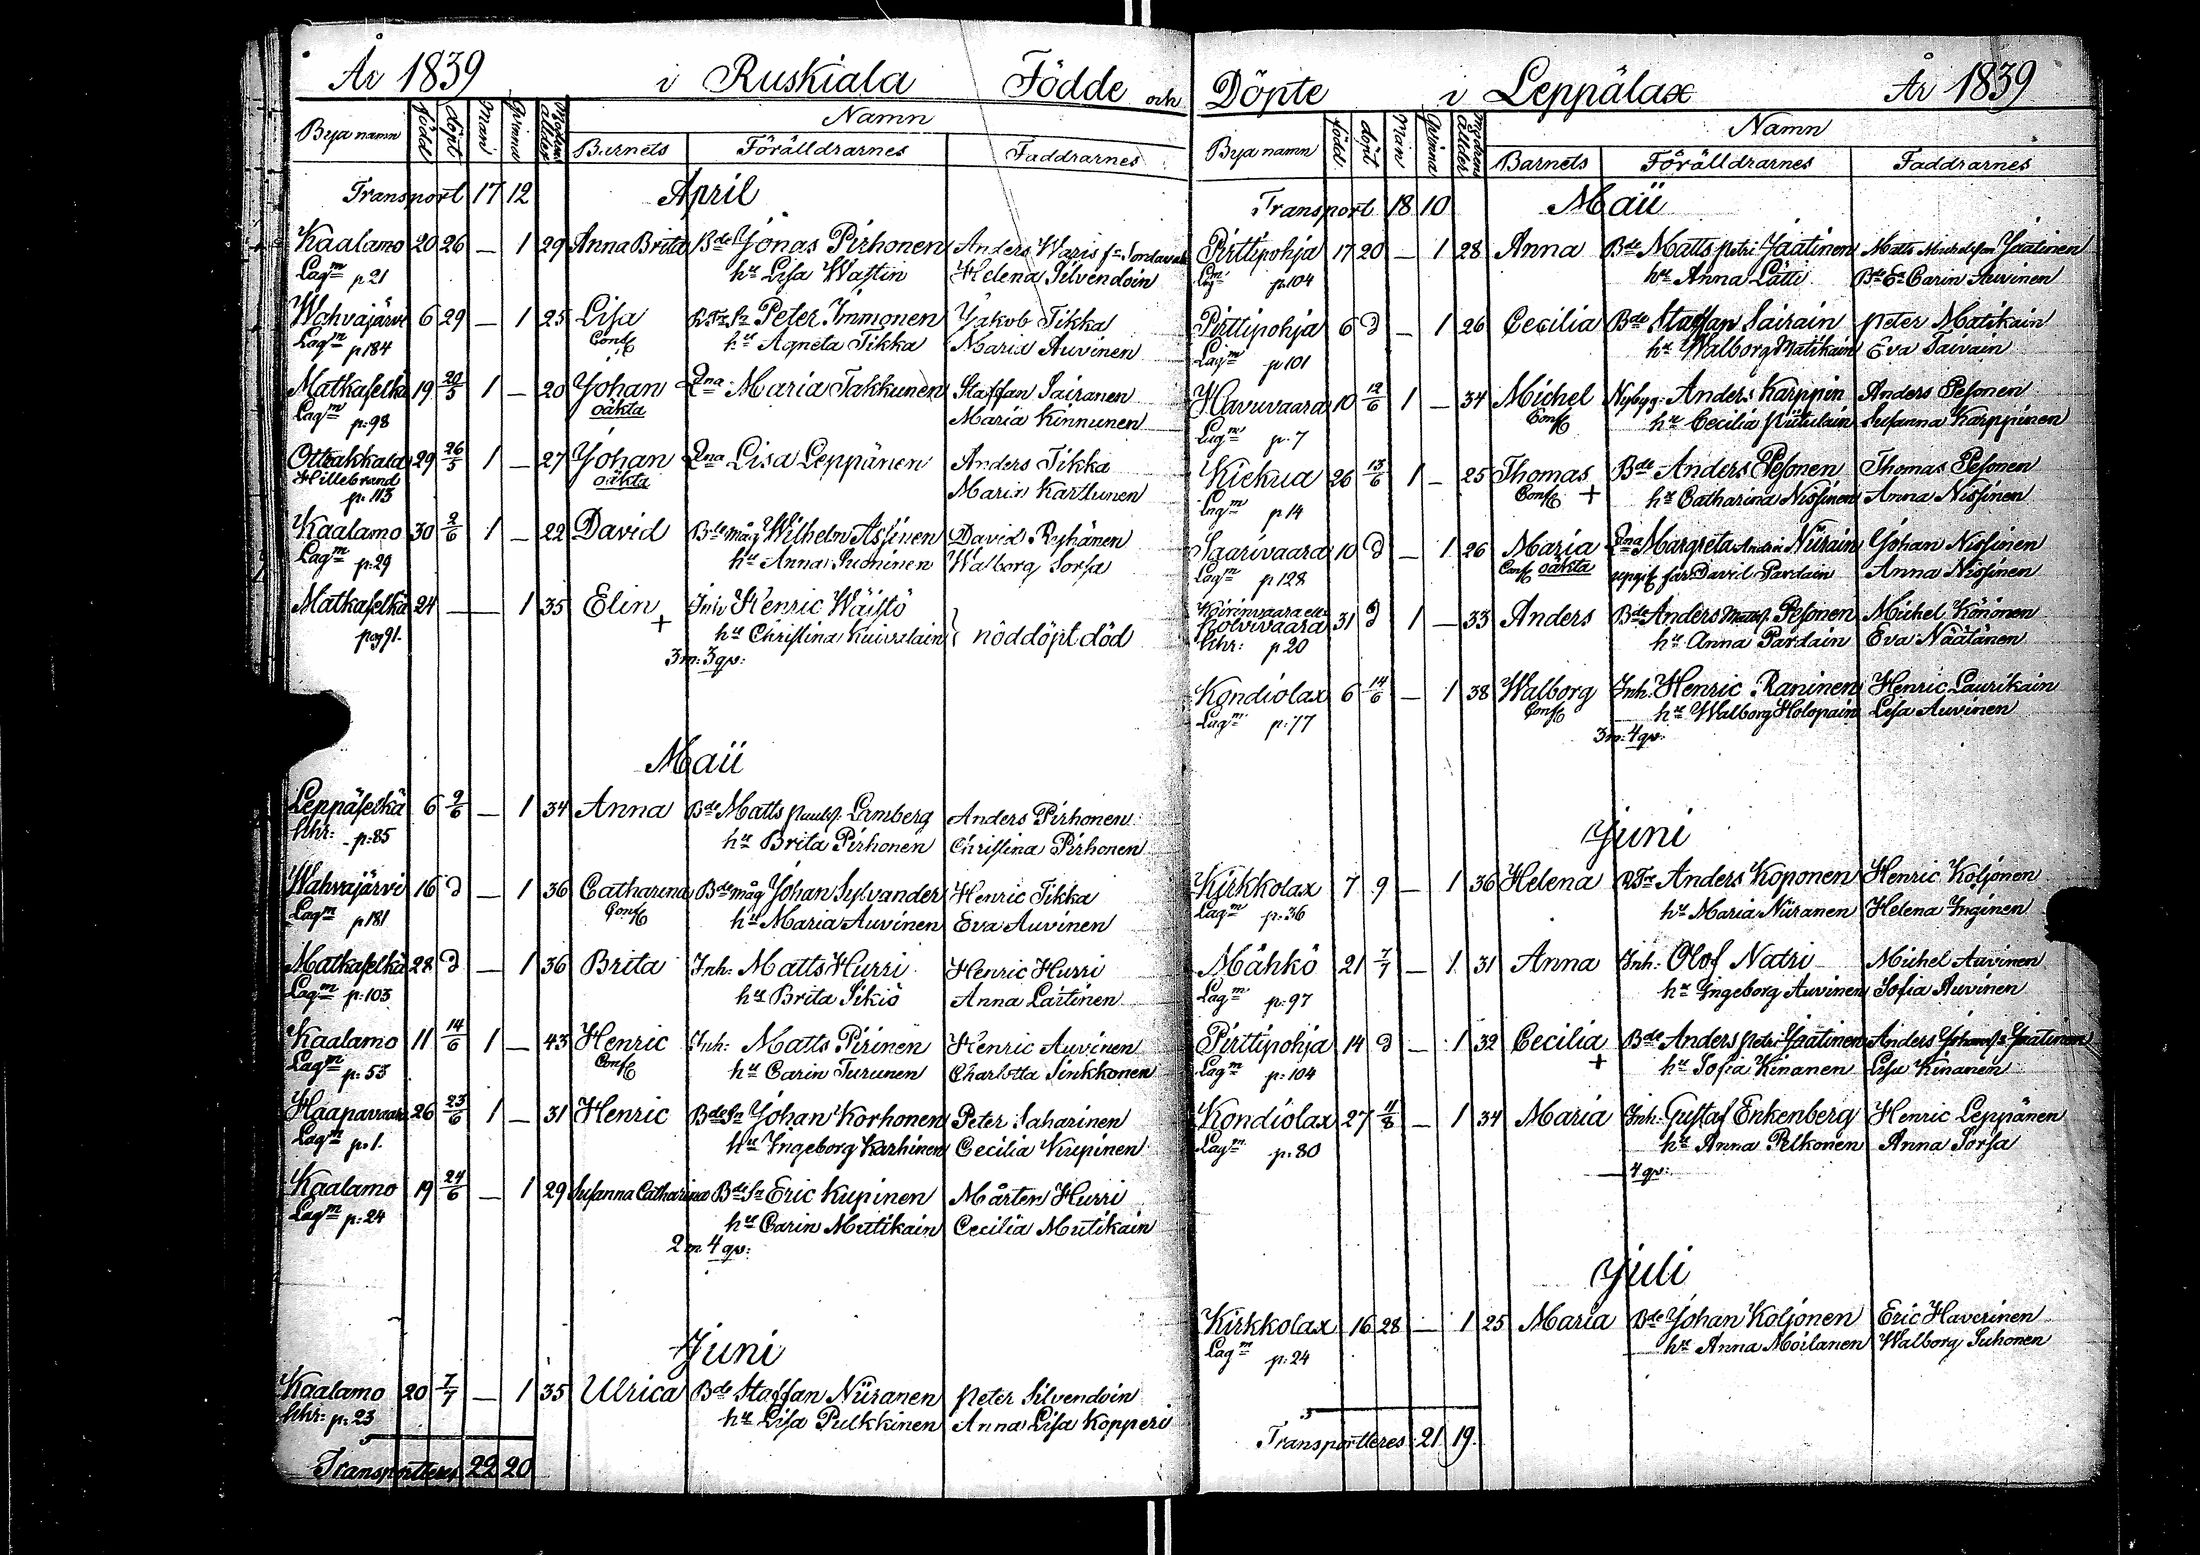 År 1839 i Ruskiala Födde och
Bya namn född döpt Man Qvinna Modrens ållder Namn
Barnets Förälldrarnes Faddrarnes
Transport 17 12 April
Kaalamo 20 26 — 1 29 Anna Brita Bde Jonas Pirhonen Anders Waris fr Sordavala
Lagm p21 hu Lisa Wastin Helena Silvendoin
Wahvajärvi 6 29 — 1 25 Lisa Peter Immonen Jakob Tikka
Lagm p184 Conf hu Agneta Tikka Maria Auvinen
Matkaselkä 19 20/5 1 — 20 Johan Qna Maria Takkunen Staffan Sairanen
Lagm p:98 oäkta Maria Kinnunen
Ottrakkala 29 26/5 1 — 27 Johan Qna Lisa Leppänen Anders Tikka
Hillebrand oäkta Maria Karttunen
p: 113
Kaalamo 30 2/6 1 — 22 David Bde måg Wilhelm Assinen David Ryhänen
Lagm p:29 hu Anna Suominen Walborg Sorsa
Matkaselkä 24 — — 1 35 Elin + Inh Henric Wäistö
pag 91. hu Christina Kuivalain } nöddöpt död
3 m: 3 qv:
Maii
Leppäselkä 6 9/6 — 1 34 Anna Bde Matts Paulss. Lamberg Anders Pirhonen
khr: p:85 hu Brita Pirhonen Christina Pirhonen
Wahvajärvi 16 d — 1 36 Catharina Bde måg Johan Sylvander Henric Tikka
Lagm p181 Conf hu Maria Auvinen Eva Auvinen
Matkaselkä 28 d — 1 36 Brita Inh: Matts Hurri Henric Hurri
Lagm p:103 hu Brita Sikiö Anna Laitinen
Kaalamo 11 14/6 1 — 43 Henric Inh: Matts Pirinen Henric Auvinen
Lagm p: 53 Conf hu Carin Turunen Charlotta Sinkkonen
Haapavaara 26 23/6 1 — 31 Henric Bde Sn Johan Korhonen Peter Saharinen
Lagm p:1. hu Ingeborg Karhinen Cecilia Kupinen
Kaalamo 19 24/6 — 1 29 Susanna Catharina Bde Sn Eric Kupinen Mårten Hurri
Lagm p:24 hu Carin Mutikain Cecilia Mutikain
2 m 4 qv:
Juni
Kaalamo 20 7/7 — 1 35 Ulrica Bde Staffan Niiranen Peter Silvendoin
khr: p: 23 hu Lisa Pulkkinen Anna Lisa Kopperi
Transportteres 22 20
Döpte i Leppälax År 1839
Bya namn född döpt Man Qvinna Modrens ållder Namn
Barnets Förälldrarnes Faddrarnes
Transport 18 10 Maii
Pirttipohja 17 20 — 1 28 Anna Bde Matts Petri Jaatinen Matts Michelsson Jaatinen
Lagm p:104 hu Anna Lätti Bde En Carin Auvinen
Pirttipohja 6 d — 1 26 Cecilia Bde Staffan Sairain Peter Matikain
Lagm p101 hu Walborg Matikain Eva Saivain
Havuvaara 10 12/6 1 — 34 Michel Nybyg: Anders Karppin Anders Pesonen
Lagm p: 7 Conf hu Cecilia Piitulain Susanna Karppinen
Kiekua 26 13/6 1 — 25 Thomas Bde Anders Pesonen Thomas Pesonen
Lagm p14 Conf + hu Catharina Nissinen Anna Nissinen
Saarivaara 10 d — 1 26 Maria Qna Margreta Andri Niirain Johan Nissinen
Lagm p128 Conf oäkta uppgif far: David Pardain Anna Nissinen
Koirinvaara eller
Kolvivaara 31 d 1 — 33 Anders Bde Anders Mattss. Pesonen Michel Könönen
khr: p20 hu Anna Pardain Eva Näätänen
Kondiolax 6 14/6 — 1 38 Walborg Inh: Henric Raninen Henric Laurikain
Lagm p:77 Conf hu Walborg Holopain Lisa Auvinen
3 m: 4 qv:
Juni
Kirkkolax 7 9 — 1 36 Helena Anders Koponen Henric Koljonen
Lagm p:36 hu Maria Niiranen Helena Inginen
Mähkö 21 7/7 — 1 31 Anna Inh: Olof Natri Michel Auvinen
Lagm p:97 hu Ingeborg Auvinen Sofia Auvinen
Pirttipohja 14 d — 1 32 Cecilia Bde Anders Petri Jaatinen Anders Johanss Jaatinen
Lagm p:104 + hu Sofia Kinanen Lisa Kinanen
Kondiolax 27 11/8 — 1 34 Maria Inh: Gustaf Enkenberg Henric Leppänen
Lagm p:80 hu Anna Pelkonen Anna Sorsa
— 4 qv:
Juli
Kirkkolax 16 28 — 1 25 Maria Bde Johan Koljonen Eric Haverinen
Lagm p:24 hu Anna Moilanen Walborg Suhonen
Transportteres 21 19.